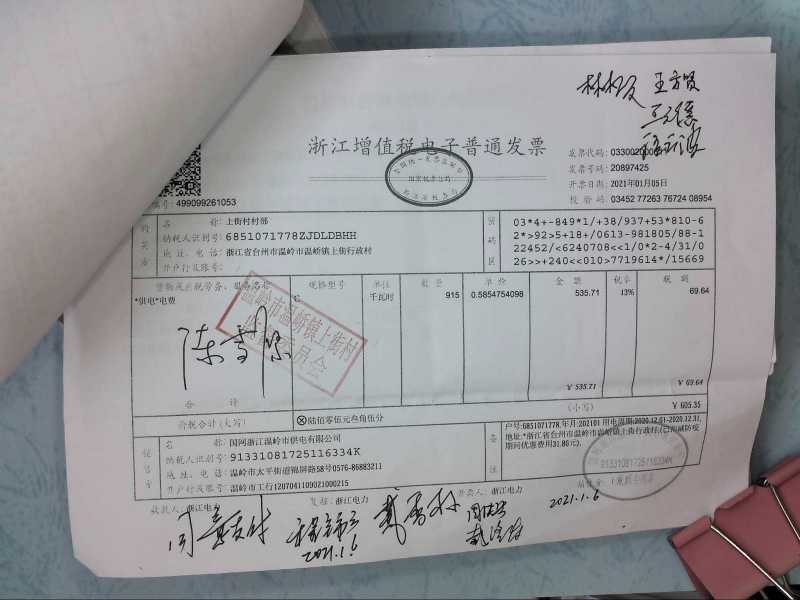 王方贤
浙江增值税电子普通发票
发票代码: 0330020
发票号码: 20897425
开票日期: 2021年01月05日
校验码: 03452 77263 76724 08954
编号: 499099261053
购买方
名称: 上街村村部
纳税人识别号: 6851071778ZJDLDBHH
地址、电话: 浙江省台州市温岭市温峤镇上街行政村
开户行及账号:
密码区
03*4+-849*1/+38/937+53*810-6
2*>92>5+18+/0613-981805/88-1
22452/<6240708<<1/0*2-4/31/0
26>>+240<<010>7719614*/15669
货物或应税劳务、服务名称 规格型号 单位 数量 单价 金额 税率 税额
*供电*电费 C 千瓦时 915 0.5854754098 535.71 13% 69.64
温岭市温峤镇上街村
委员会
陈雪
合计 ¥ 535.71 ¥ 69.64
价税合计(大写) ⊗陆佰零伍元叁角伍分 (小写) ¥ 605.35
销售方
名称: 国网浙江温岭市供电有限公司
纳税人识别号: 91331081725116334K
地址、电话: 温岭市太平街道锦屏路58号0576-86883211
开户行及账号: 温岭市工行1207041109021000215
备注
户号:6851071778,年月:202101 用电周期:2020.12.01-2020.12.31,
地址:*浙江省台州市温岭市温峤镇上街行政村,(已扣减防疫
期间优惠费用31.86元)
91331081725116334K
发票专用章
收款人: 浙江电力 复核: 浙江电力 开票人: 浙江电力 销售方:
2021.1.6
2021.1.6